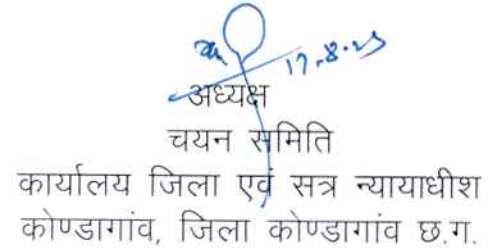 17.8.23
अध्यक्ष
चयन समिति
कार्यालय जिला एवं सत्र न्यायाधीश
कोण्डागांव, जिला कोण्डागांव छ.ग.